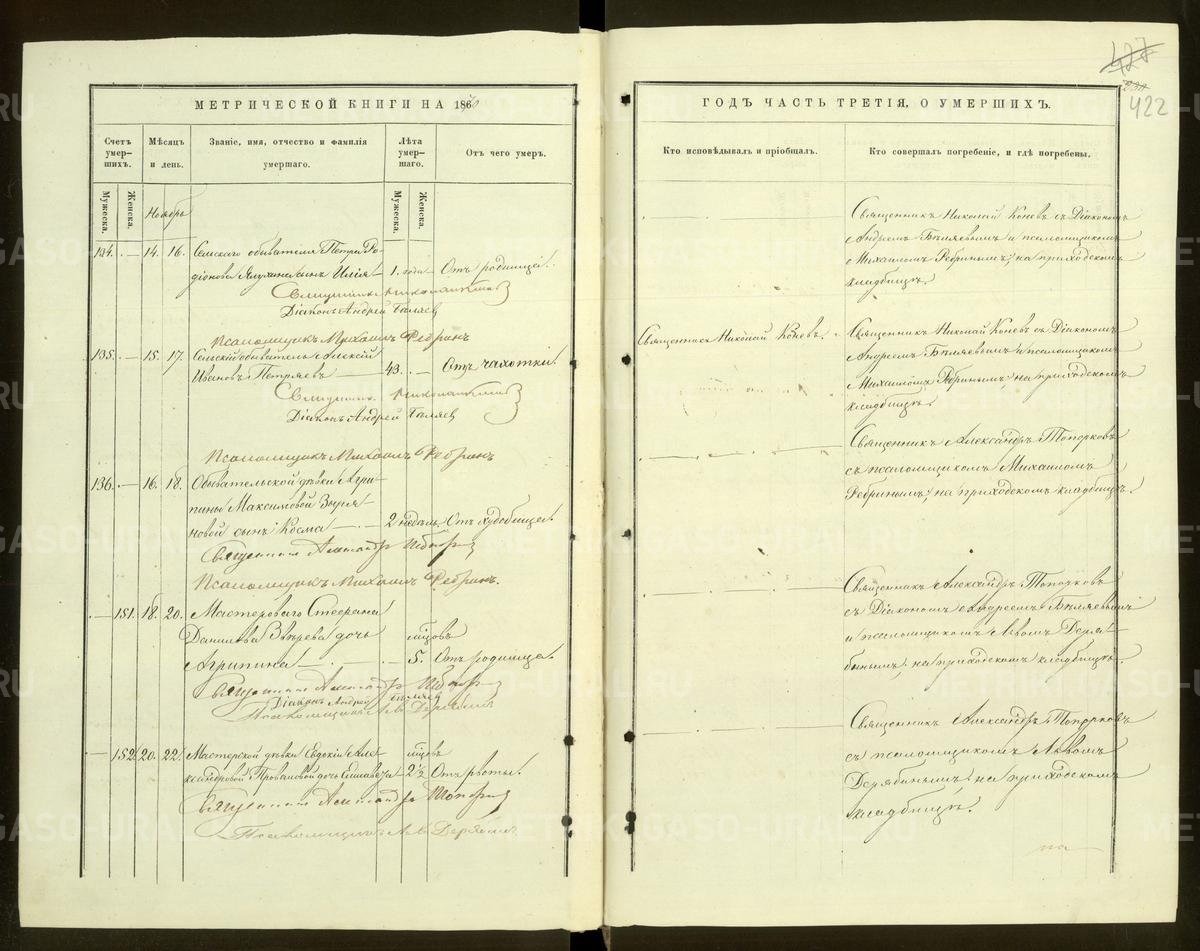 МЕТРИЧЕСКОЙ КНИГИ НА 1870
Счетъ умер-шихъ.
Мѣсяцъ и день.
Званіе, имя, отчество и фамилія умершаго.
Лѣта умер-шаго.
Отъ чего умеръ.
Мужеска.
Женска.
Мужеска.
Женска.
Ноябрь
134. — 14. 16. Сельскаго обывателя Петра Ро-
діонова сынъ Илія — 1. года Отъ родимца.
Священникъ Николай
Діаконъ Андрей Бѣляев
Псаломщикъ Михаилъ Ребринъ
135. — 15. 17. Сельскій обыватель Алексій
Ивановъ — 43. — Отъ чахотки.
Священникъ Николай
Діаконъ Андрей Бѣляев
Псаломщикъ Михаилъ Ребринъ
136. — 16. 18. Обывательской дѣвки Агри-
пины Максимовой Звѣря-
новой сынъ Косма — 2 недѣль. Отъ худобища.
Священникъ Александръ Топорков
Псаломщикъ Михаилъ Ребринъ.
— 151. 18. 20. Мастероваго Стефана
Данилова Звѣрева дочь мѣсцовъ
Агрипина — 5. Отъ родимца.
Священникъ Александръ Топорков
Діаконъ Андрей Бѣляев
Псаломщикъ Левъ Дерябинъ
— 152. 20. 22. Мастерской дѣвки Евдокіи Алек- мѣсцовъ
сандровой дочь Елисавета 2½ Отъ рвоты.
Священникъ Александръ Топорков
Псаломщикъ Левъ Дерябинъ
427
422
ГОДЪ ЧАСТЬ ТРЕТІЯ, О УМЕРШИХЪ.
Кто исповѣдывалъ и пріобщалъ.
Кто совершалъ погребеніе, и гдѣ погребены.
Священникъ Николай Коневъ съ Діакономъ
Андреемъ Бѣляевымъ и псаломщикомъ
Михаиломъ Ребринымъ, на приходскомъ
кладбищѣ.
Священникъ Николай Коневъ.
Священникъ Николай Коневъ съ Діакономъ
Андреемъ Бѣляевымъ и псаломщикомъ
Михаиломъ Ребринымъ на приходскомъ
кладбищѣ.
Священникъ Александръ Топорковъ
съ псаломщикомъ Михаиломъ
Ребринымъ, на приходскомъ кладбищѣ.
Священникъ Александръ Топорковъ
съ Діакономъ Андреемъ Бѣляевымъ
и псаломщикомъ Львомъ Деря-
бинымъ, на приходскомъ кладбищѣ.
Священникъ Александръ Топорковъ
съ псаломщикомъ Львомъ
Дерябинымъ на приходскомъ
кладбищѣ.
на
METRIKI.GASO-URAL.RU